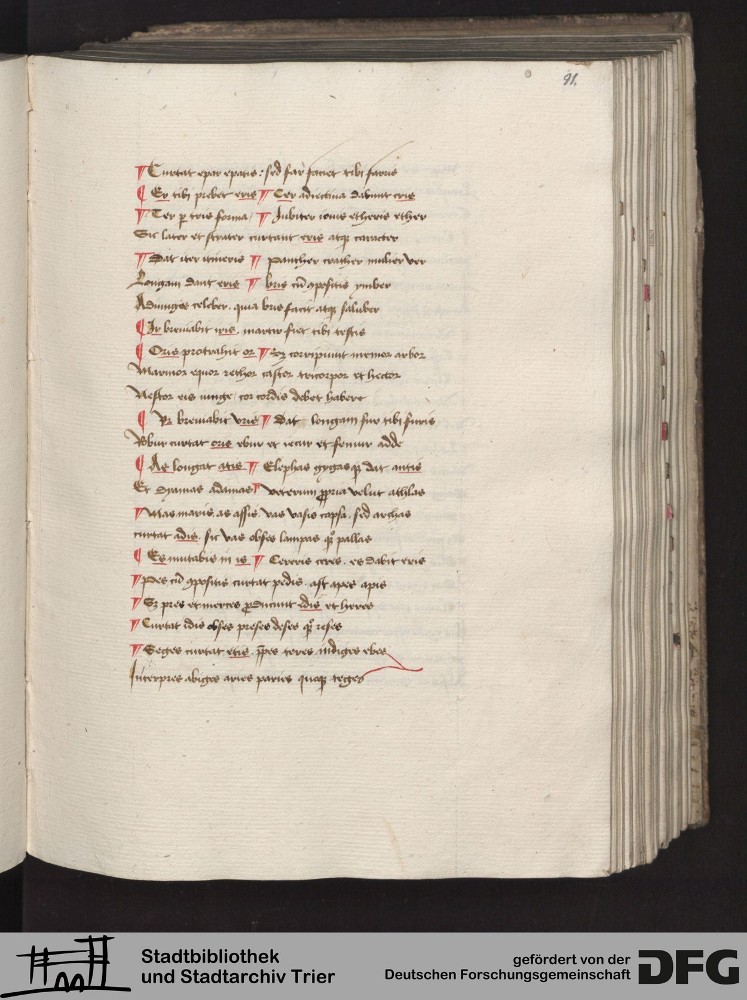 91.
Curtat epar epatis : sed far faciet tibi farris
Er tibi prebet eris Cer adiectiua dabunt cris
Ter p tris forma / Iubiter iouis etheris ether
Sic later et strater curtant eris atq caracter
Dat iter itineris panther crather mulier ver
Longam dant eris bris cu 9positis ymber
Adiunges celeber . quia bris facit atq saluber
Ir breuiabit iris . martir fiet tibi testis
Oris protrahit or corripiunt memor arbor
Marmor equor rethor castor tricorpor et hector
Nestor eis iunge / cor cordis debet habere
Vr breuiabit vris Dat longam fur tibi furis
Robur curtat oris ebur et iecur et femur adde
As longat atis Elephas gygasq dat antis
Et dyamas adamas veterum ppria velut athlas
Mas maris as assis vas vasis capsa . sed archas
curtat adis . sic vas obses lampas q pallas
Es mutabis in is Cereris ceres . es dabit eris
Pes cu 9positis curtat pedis . ast apes apis
Sz pres et merces pducunt edis et heres
Curtat idis obses preses deses q reses
Seges curtat etis . ppes teres indiges ebes
Interpres abiges aries paries quoq teges
Stadtbibliothek
und Stadtarchiv Trier
gefördert von der
Deutschen Forschungsgemeinschaft
DFG